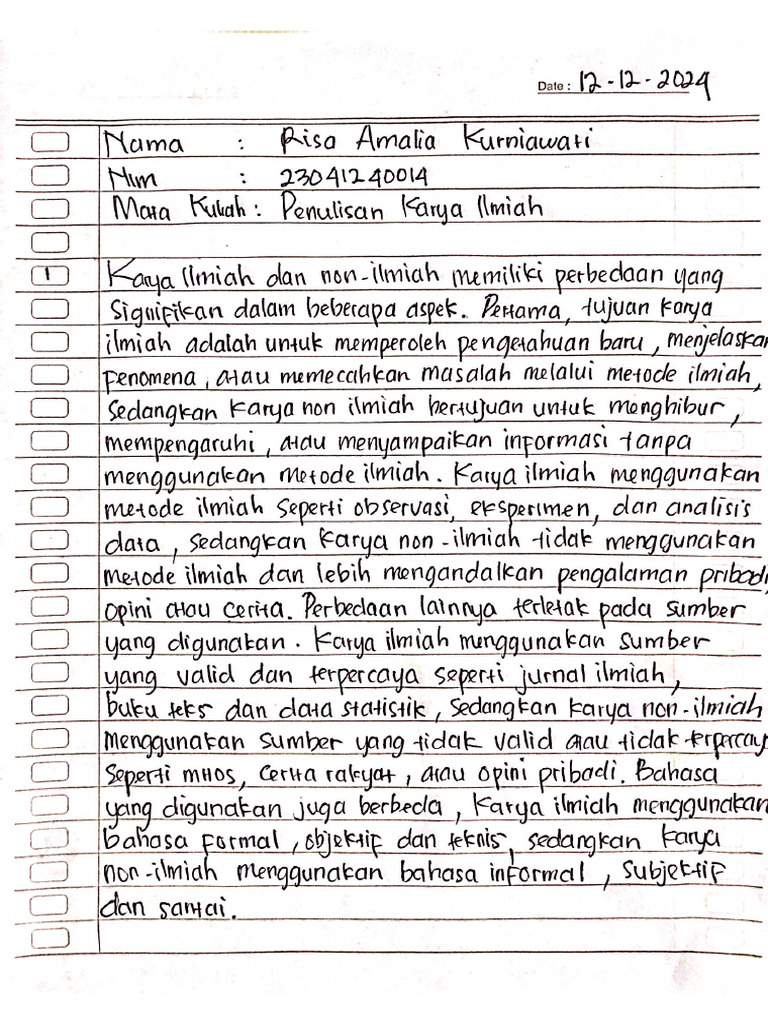 Date : 12-12-2024
Nama : Risa Amalia Kurniawati
Nim : 23041240014
Mata Kuliah : Penulisan Karya Ilmiah
1 Karya Ilmiah dan non-ilmiah memiliki perbedaan yang
Signifikan dalam beberapa aspek. Pertama, tujuan karya
ilmiah adalah untuk memperoleh pengetahuan baru, menjelaskan
Fenomena, atau memecahkan masalah melalui metode ilmiah,
Sedangkan karya non ilmiah bertujuan untuk menghibur,
mempengaruhi, atau menyampaikan informasi tanpa
menggunakan metode ilmiah. Karya ilmiah menggunakan
metode ilmiah seperti observasi, eksperimen, dan analisis
data, sedangkan karya non-ilmiah tidak menggunakan
metode ilmiah dan lebih mengandalkan pengalaman pribadi,
opini atau cerita. Perbedaan lainnya terletak pada sumber
yang digunakan. Karya ilmiah menggunakan sumber
yang valid dan terpercaya seperti jurnal ilmiah,
buku teks dan data statistik, sedangkan karya non-ilmiah
menggunakan sumber yang tidak valid atau tidak terpercaya
seperti mitos, cerita rakyat, atau opini pribadi. Bahasa
yang digunakan juga berbeda, karya ilmiah menggunakan
bahasa formal, objektif dan teknis, sedangkan karya
non-ilmiah menggunakan bahasa informal, subjektif
dan santai.